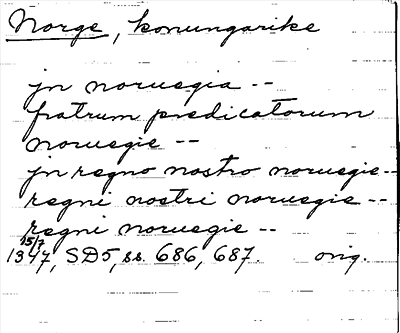 Norge, konungarike
jn noruegia --
fratrum predicatorum
noruegie --
jn regno nostro noruegie--
regni nostri noruegie --
regni noruegie --
15/7
1347, SD5, ss. 686, 687. orig.